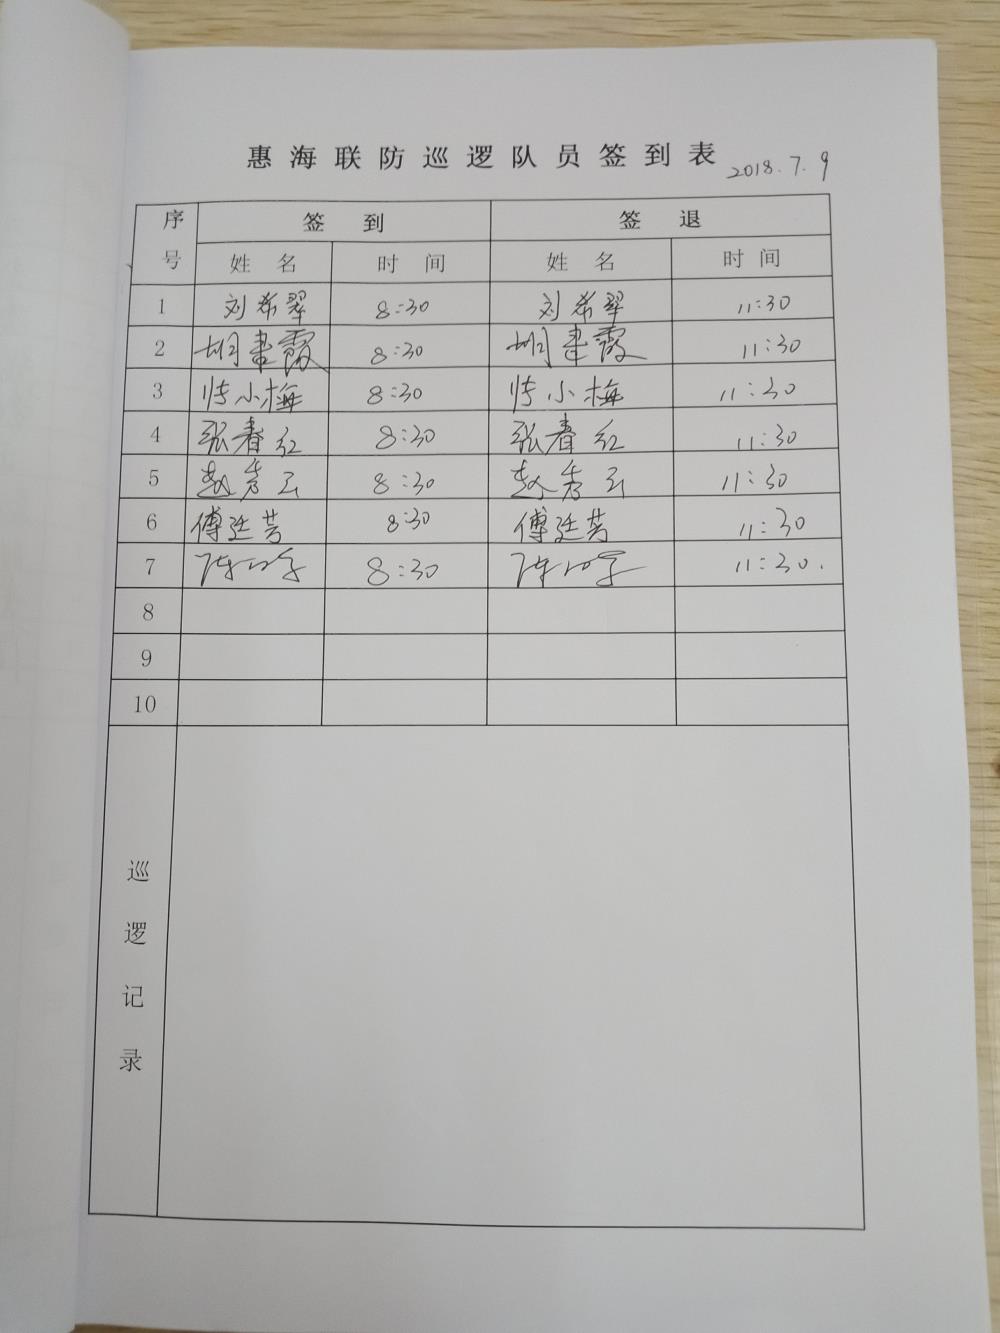 惠海联防巡逻队员签到表 2018.7.9
序号 签到 签退
姓名 时间 姓名 时间
1 刘希翠 8:30 刘希翠 11:30
2 胡書霞 8:30 胡書霞 11:30
3 小梅 8:30 小梅 11:30
4 张春红 8:30 张春红 11:30
5 赵秀云 8:30 赵秀云 11:30
6 傅廷芳 8:30 傅廷芳 11:30
7 陈 8:30 陈 11:30.
8
9
10
巡逻记录